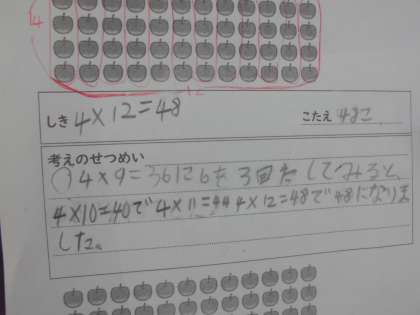 4
12
しき 4×12=48
こたえ 48こ
考えのせつめい
① 4×9=36に6を3回たしてみると、
4×10=40で4×11=44 4×12=48で48になりま
した。